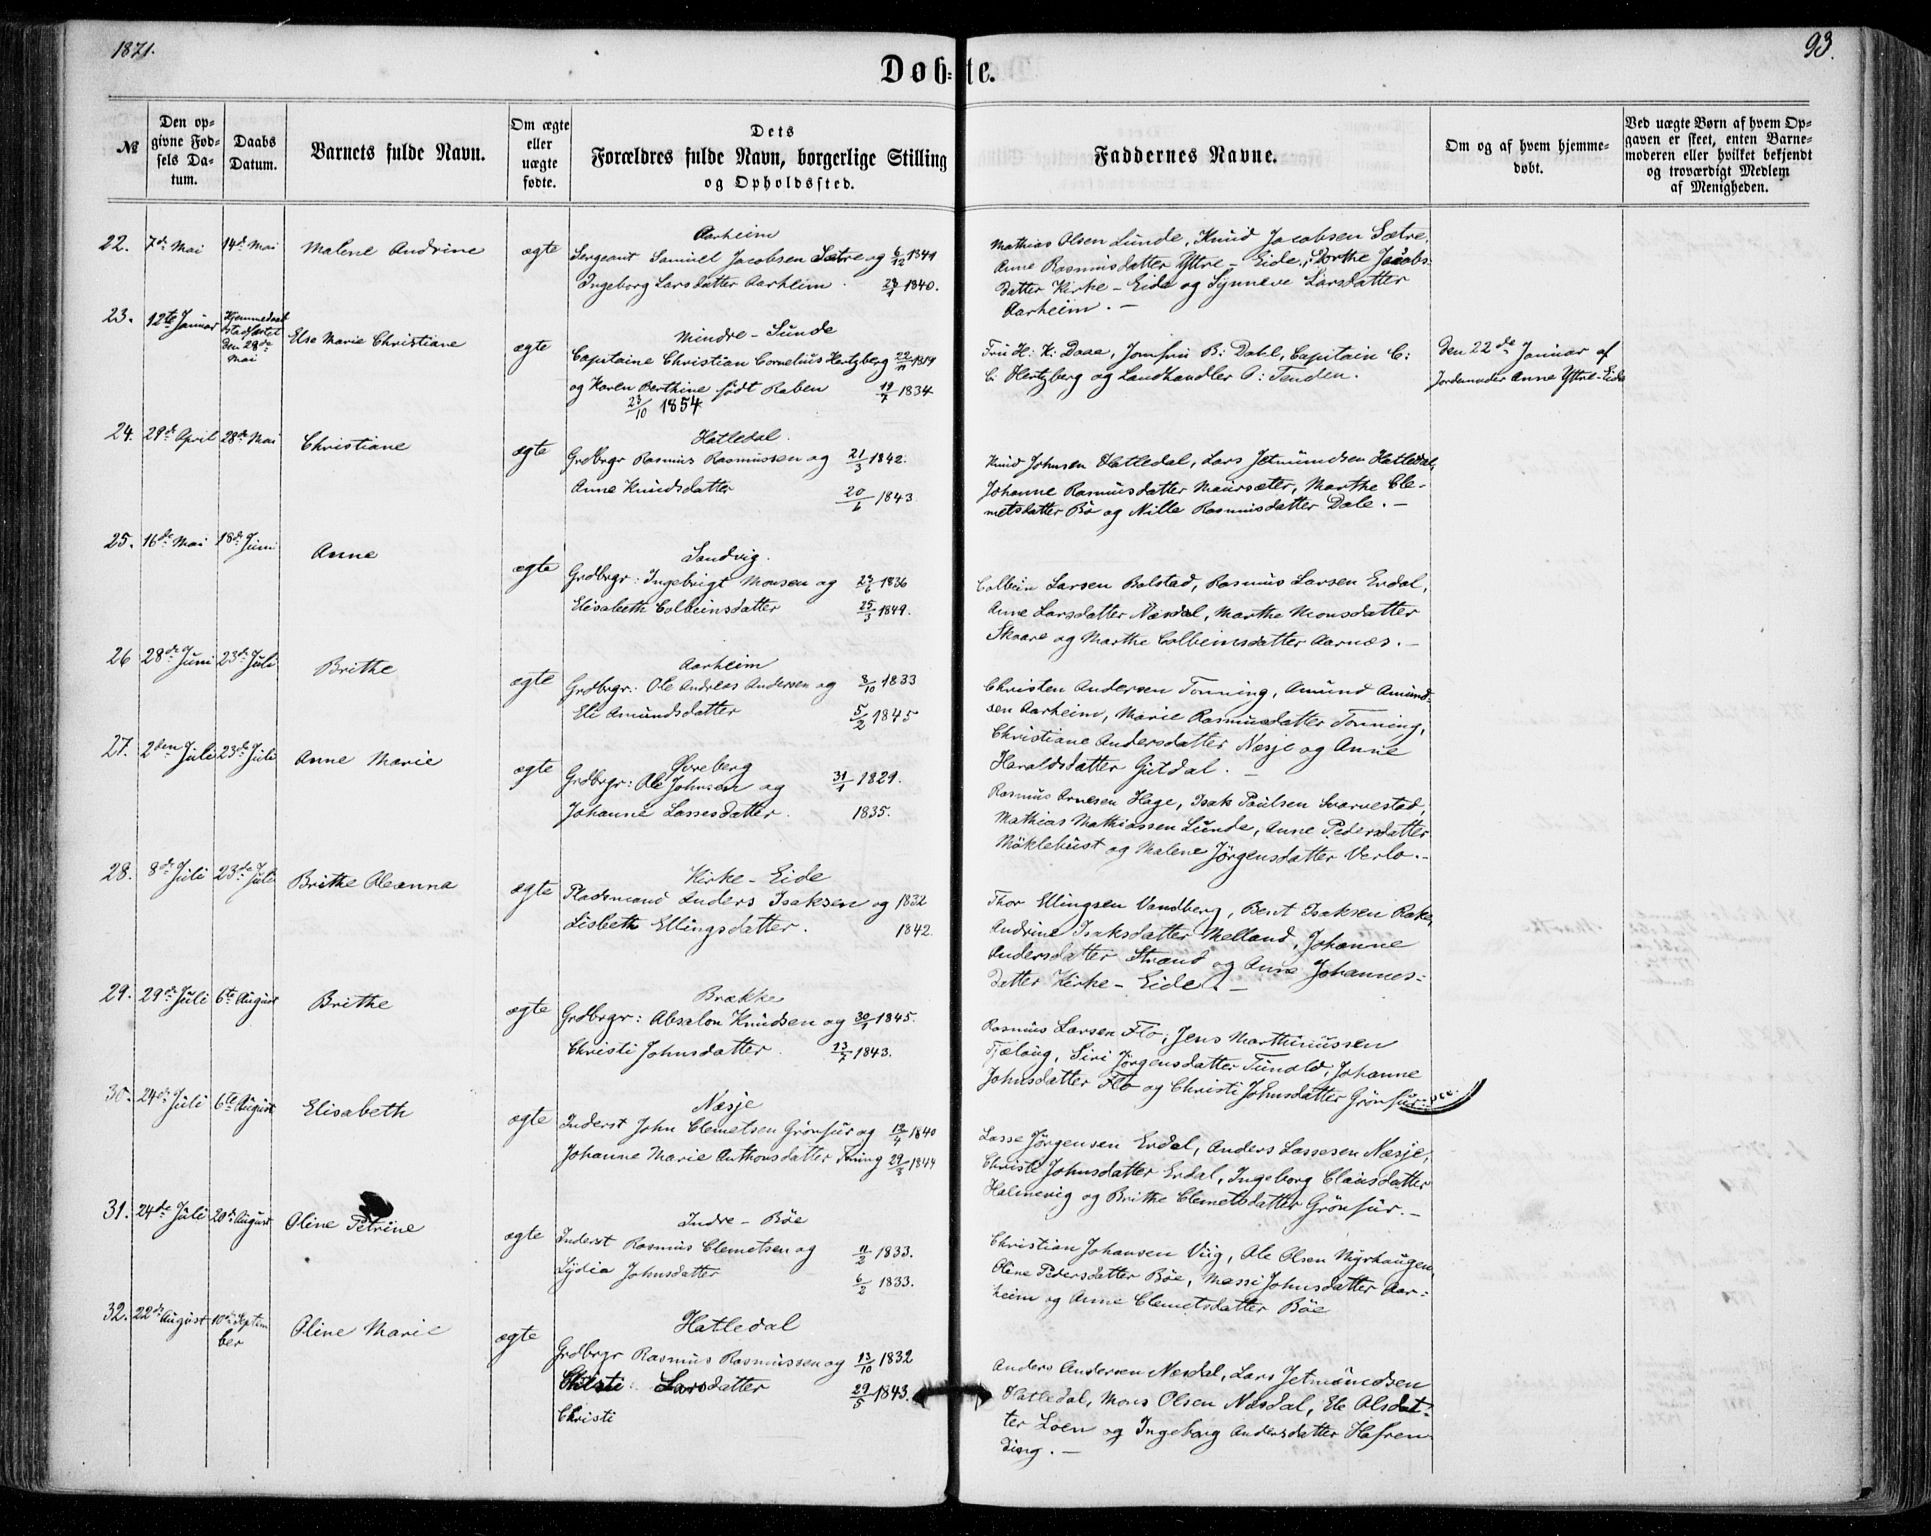 1871.
93.
Døb-te.
№
Den op-
givne Fød-
sels Da-
tum.
Daabs
Datum.
Barnets fulde Navn.
Om ægte
eller
uægte
fødte.
Dets
Forældres fulde Navn, borgerlige Stilling
og Opholdssted.
Faddernes Navne.
Om og af hvem hjemme-
døbt.
Ved uægte Børn af hvem Op-
gaven er skeet, enten Barne-
moderen eller hvilket bekjendt
og troværdigt Medlem
af Menigheden.
22. 7de Mai 14de Mai Malene Andrine ægte
Aarheim
Sergeant Samuel Jacobsen Sætre og 6/12 1841
Ingeborg Larsdatter Aarheim. 1840.
Mathias Olsen Lunde, Knud Jacobsen Sætre,
Anne Rasmusdatter Yttre-Eide, Dorthe Jacobs-
datter Kirke-Eide og Synneve Larsdatter
Aarheim. —
23. 12te Januar Hjemmedaab
stadfæstet
den 28de
Mai
Else Marie Christiane ægte
Mindre-Sunde
Capitaine Christian Cornelius Hertzberg 22/11 1819
og Karen Berthine født Raben 19/7 1834
23/10 1854
Fru H: K: Daae, Jomfru B: Dahl, Capitain C:
C: Hertzberg og Landhandler P: Tenden.
Den 22de Januar af
Jordemoder Anne Yttre-Eide
24. 29de April 28de Mai Christiane ægte
Hatledal.
Grdbrgr Rasmus Rasmussen og 21/3 1842.
Anne Knudsdatter 20/6 1843
Knud Johnsen Hatledal, Lars Jetmundsen Hatledal,
Johanne Rasmusdatter Maursæter, Marthe Cle-
metsdatter Bø og Nille Rasmusdatter Dale. —
25. 16de Mai 18de Juni Anne ægte
Sandvig.
Grdbrgr: Ingebrigt Monsen og 23/6 1836
Elisabeth Colbeinsdatter 25/3 1849.
Colbein Larsen Bolstad, Rasmus Larsen Erdal,
Anne Larsdatter Næsdal, Marthe Monsdatter
Skaare og Marthe Colbeinsdatter Aarnæs. —
26 28de Juni 23de Juli Brithe ægte
Aarheim
Grdbrgr: Ole Andreas Andersen og 8/10 1833
Eli Amundsdatter 5/2 1845
Christen Andersen Tonning, Amund Amund-
sen Aarheim, Marie Rasmusdatter Tonning,
Christiane Andersdatter Næsje og Anne
Haraldsdatter Gutdal. —
27. 2den Juli 23de Juli Anne Marie ægte
Øvreberg
Grdbrgr: Ole Johnsen og 31/1 1829.
Johanne Lassesdatter. 1835.
Rasmus Arnesen Hage, Isak Paulsen Svarvestad,
Mathias Mathiassen Lunde, Anne Pedersdatter
Møklebust og Malene Jørgensdatter Verlo. —
28. 8de Juli 23de Juli Brithe Oleanna ægte
Kirke-Eide
Pladsmand Anders Isaksen og 1832
Lisbeth Ellingsdatter. 1842.
Thor Ellingsen Vandberg, Bent Isaksen Rake,
Andrine Isaksdatter Melland, Johanne
Andersdatter Strand og Anne Johannes-
datter Kirke-Eide. —
29. 29de Juli 6te August Brithe ægte
Brække
Grdbrgr: Absalon Knudsen og 1845.
Christi Johnsdatter. 13/7 1843.
Rasmus Larsen Flo, Jens Marthinussen
Tjelaug, Siri Jørgensdatter Tunold, Johanne
Johnsdatter Flo og Christi Johnsdatter Grønfur
30. 24de Juli 6te August Elisabeth ægte
Næsje
Inderst John Clemetsen Grønfur og 12/4 1840
Johanne Marie Anthonsdatter Toning 29/3 1844
Lasse Jørgensen Erdal, Anders Lassesen Næsje,
Christi Johnsdatter Erdal, Ingeborg Clausdatter
Holmevig og Brithe Clemetsdatter Grønfur. —
31. 24de Juli 20de August Oline Petrine ægte
Indre-Bøe
Inderst Rasmus Clemetsen og 11/2 1833.
Lydia Johnsdatter 6/2 1833.
Christian Johansen Viig, Ole Olsen Myrhaugen,
Oline Pedersdatter Bøe, Massi Johnsdatter Aar-
heim og Anne Clemetsdatter Bøe
32. 22de August 10de Septem
ber
Oline Marie ægte
Hatledal
Grdbrgr Rasmus Rasmussen og 13/10 1832
Larsdatter 29/5 1843.
Christi
Anders Andersen Næsdal, Lars Jetmundsen
Hatledal, Mons Olsen Næsdal, Ele Olsdat-
ter Loen og Ingeborg Andersdatter Hafren
ding. —